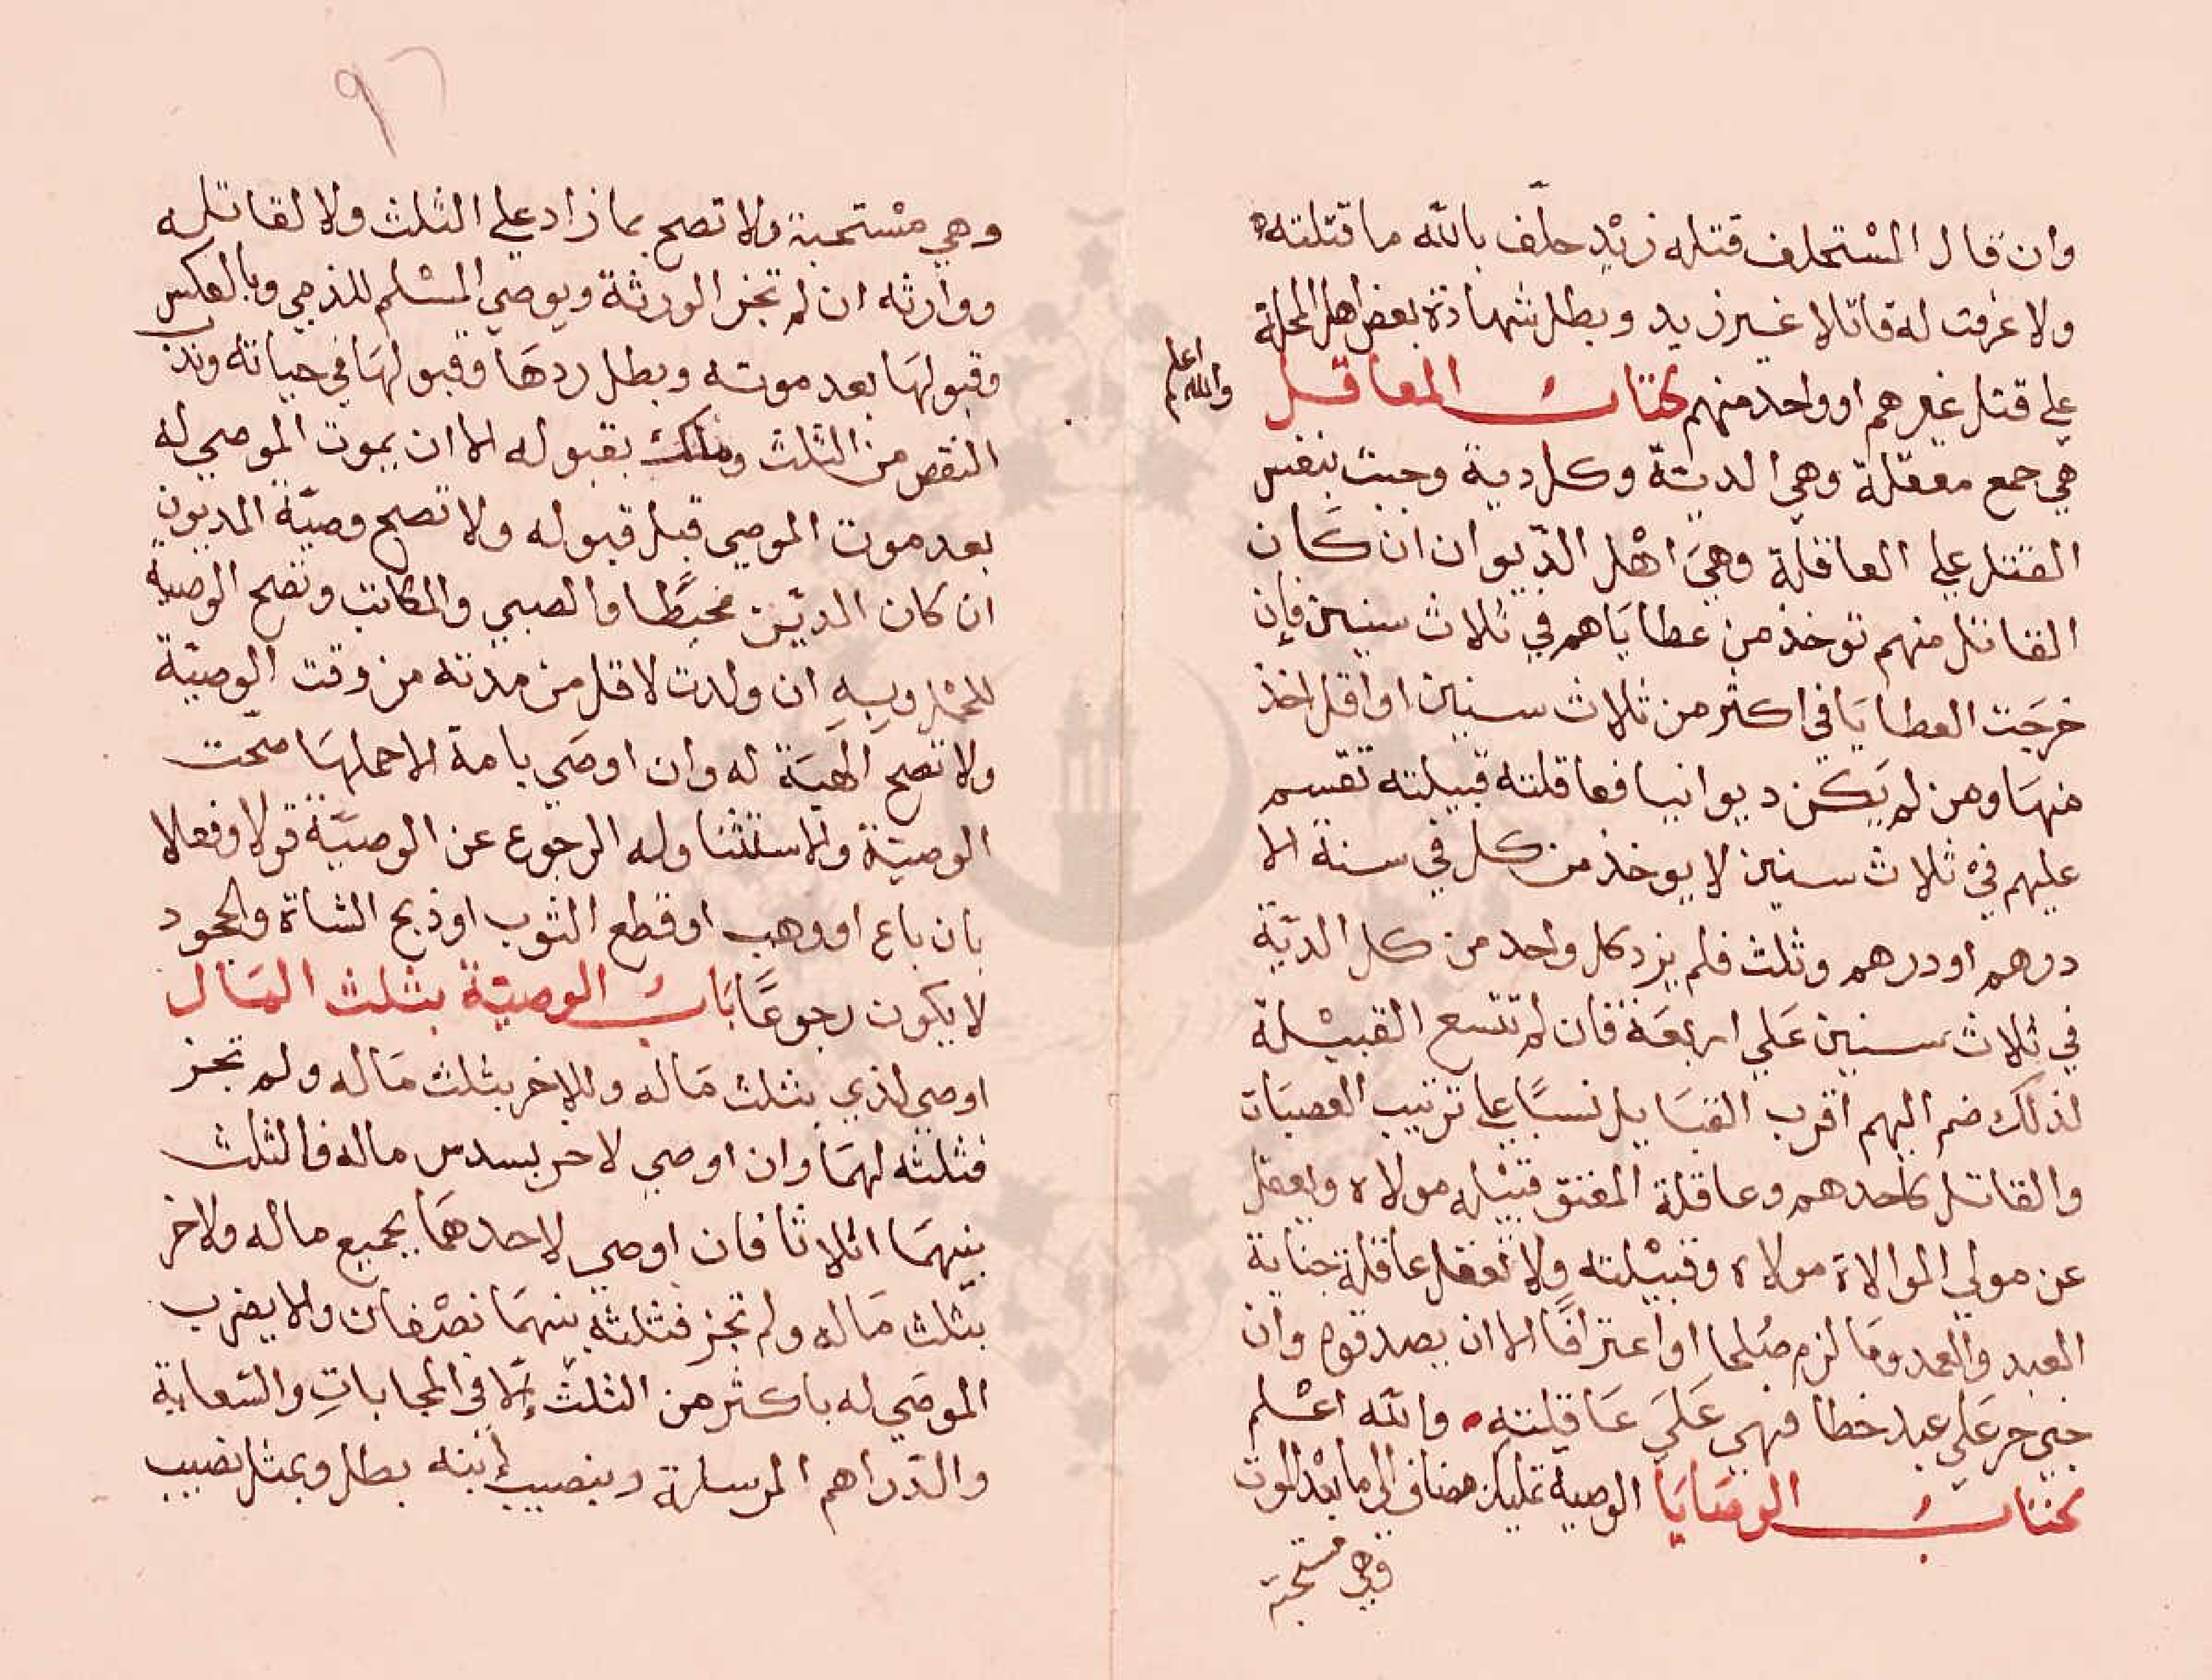 وان قال المستحلف قتله زيد حلف بالله ما قتلته
ولا عرفت له قاتلا غير زيد وبطل شهادة بعض اهل المحلة
علي قتل غيرهم او واحد منهم كتاب المعاقل
والله اعلم
هي جمع معقلة وهي الدية وكل دية وجبت بنفس
القتل علي العاقلة وهي اهل الديوان ان كان
القاتل منهم توخذ من عطاياهم في ثلاث سنين فإن
خرجت العطايا في اكثر من ثلاث سنين او اقل اخذ
منها ومن لم يكن ديوانيا فعاقلته قبيلته تقسم
عليهم في ثلاث سنين لا يوخذ من كل في سنة الا
درهم او درهم وثلث فلم يزد كل واحد من كل الدية
في ثلاث سنين علي اربعة فان لم تتسع القبيلة
لذلك ضم اليهم اقرب القبايل نسبًا علي ترتيب العصبات
والقاتل كاحدهم وعاقلة المعتق قبيله مولاه ويعقل
عن مولي الموالاة مولاه وقبيلته ولا تعقل عاقلة جناية
العبد والعمد وما لزم صلحا او اعترافًا الا ان يصدقوه وان
جني حر علي عبد خطا فهي علي عاقلته والله اعلم
كتاب الوصايا الوصية تمليك مضاف الي ما بعد الموت
وهي مستحبة
٩٦
وهي مستحبة ولا تصح بما زاد علي الثلث ولا لقاتله
ووارثه ان لم تجز الورثة ويوصي المسلم للذمي وبالعكس
وقبولها بعد موته وبطل ردها وقبولها في حياته وندب
النقص من الثلث وملك بقبوله الا ان يموت الموصي له
بعد موت الموصي قبل قبوله ولا تصح وصية المديون
ان كان الدين محيطًا والصبي والمكاتب وتصح الوصية
للحمل وبه ان ولدت لاقل من مدته من وقت الوصية
ولا تصح الهبة له وان اوصي بامة الا حملها صحت
الوصية والاستثنا وله الرجوع عن الوصية قولا وفعلا
بان باع او وهب او قطع الثوب او ذبح الشاة والجحود
لا يكون رجوعًا باب الوصية بثلث المال
اوصي لذي بثلث ماله وللاخر بثلث ماله ولم تجز
فثلثه لهما وان اوصي لاخر بسدس ماله فالثلث
بينهما اثلاثا فان اوصي لاحدهما بجميع ماله ولاخر
بثلث ماله ولم تجز فثلثه بينهما نصفان ولا يضرب
الموصي له باكثر من الثلث إلا في المحابات والسعاية
والدراهم المرسلة وبنصيب إبنه بطل وبمثل نصيب